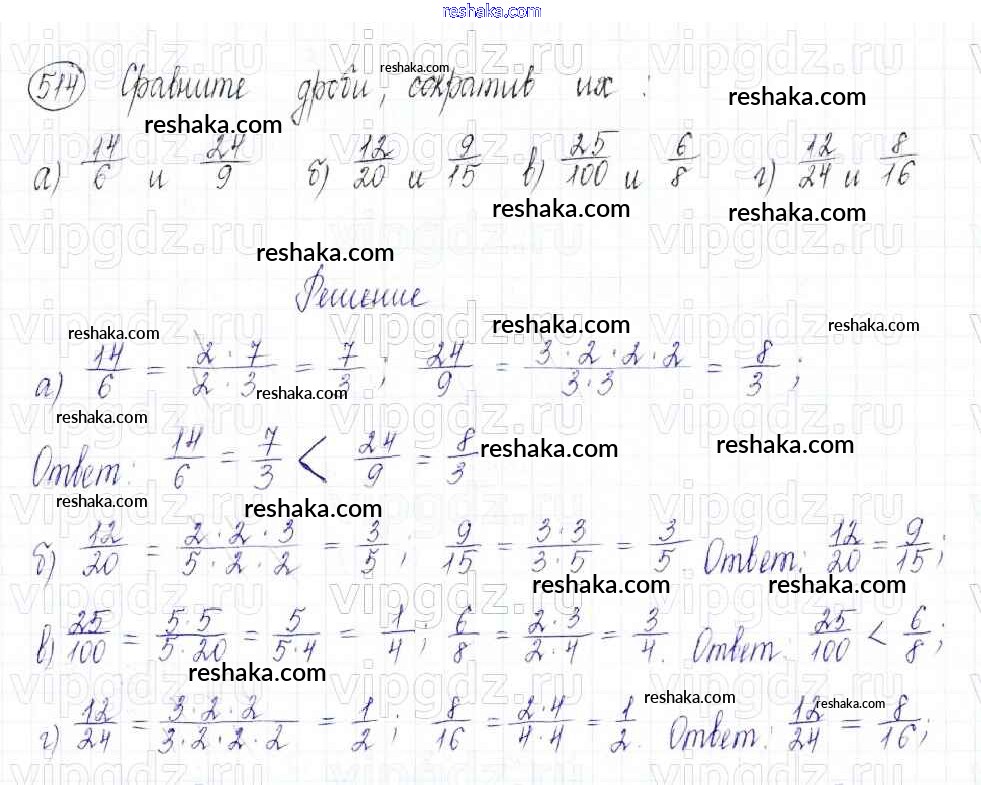 reshaka.com
514 Сравните дроби, сократив их:
а) 14/6 и 24/9 б) 12/20 и 9/15 в) 25/100 и 6/8 г) 12/24 и 8/16
Решение
а) 14/6 = 2·7/2·3 = 7/3; 24/9 = 3·2·2·2/3·3 = 8/3;
Ответ: 14/6 = 7/3 < 24/9 = 8/3
б) 12/20 = 2·2·3/5·2·2 = 3/5; 9/15 = 3·3/3·5 = 3/5. Ответ: 12/20 = 9/15;
в) 25/100 = 5·5/5·20 = 5/5·4 = 1/4; 6/8 = 2·3/2·4 = 3/4. Ответ: 25/100 < 6/8;
г) 12/24 = 3·2·2/3·2·2·2 = 1/2; 8/16 = 2·4/4·4 = 1/2. Ответ: 12/24 = 8/16;